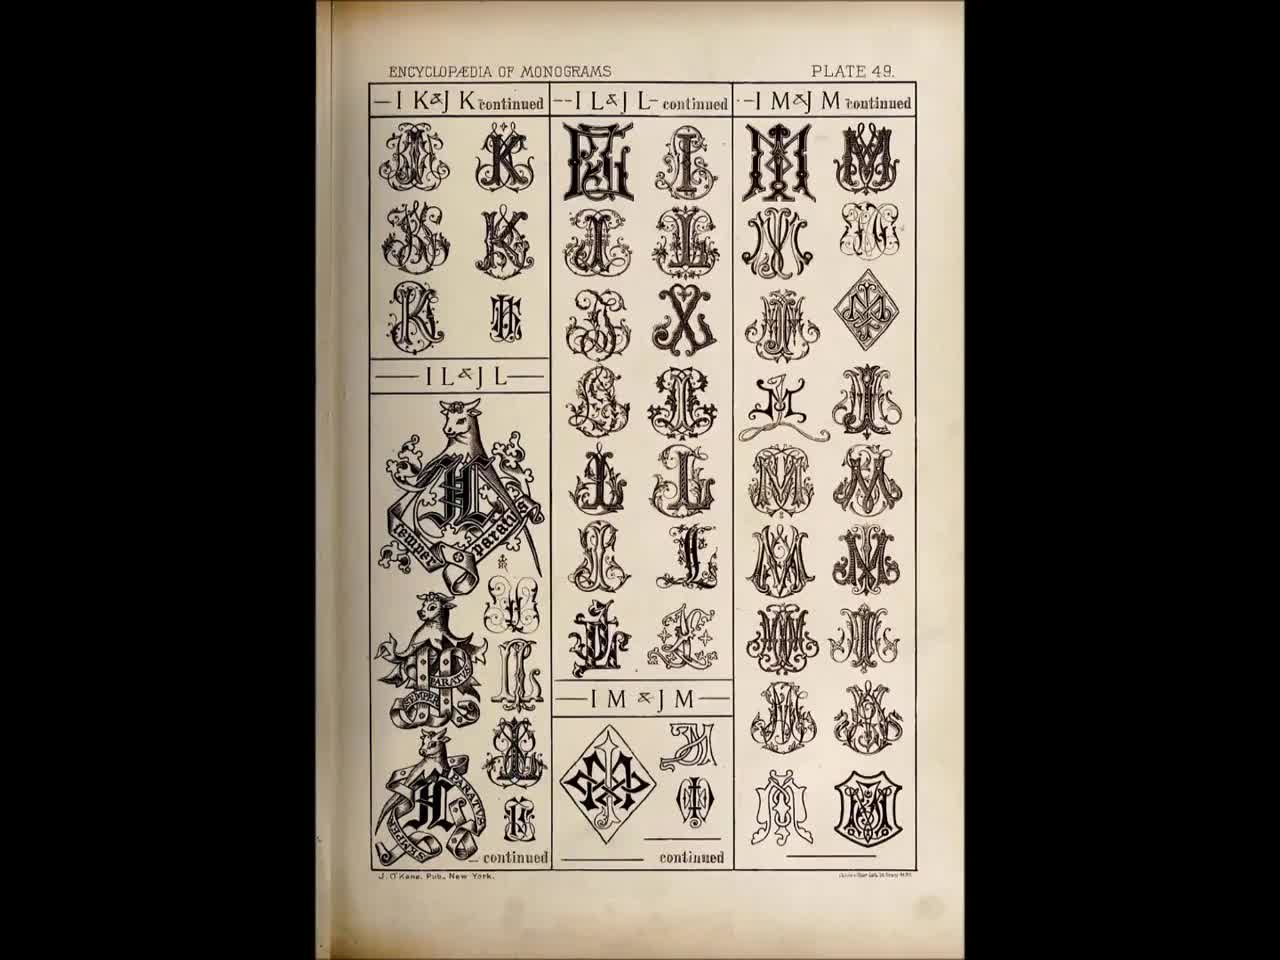 ENCYCLOPÆDIA OF MONOGRAMS
PLATE 49.
I K & J K continued
I L & J L continued
I M & J M continued
I L & J L
semper paratus
SEMPER PARATVS
I M & J M
SEMPER PARATVS
continued
continued
J. O'Kane, Pub., New York.